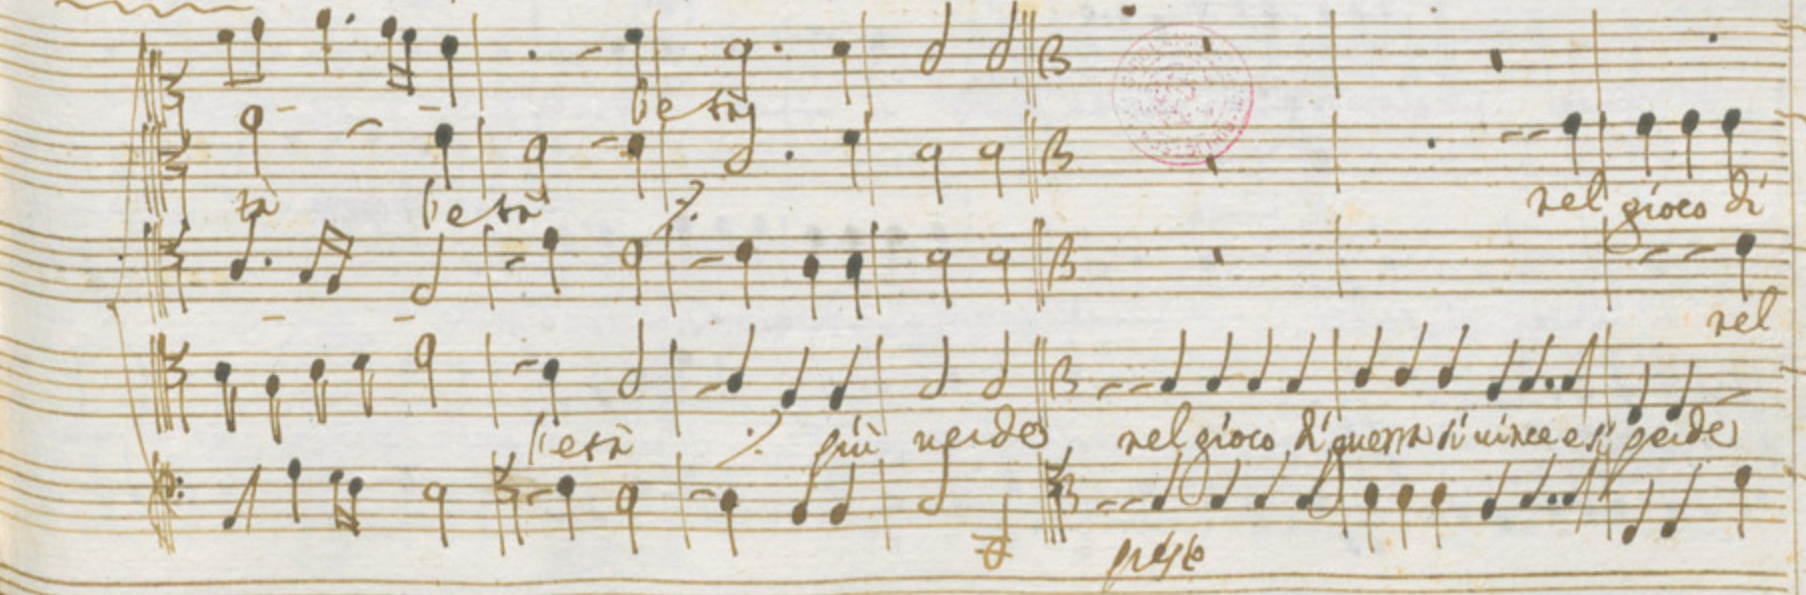 l'età
tà l'età
nel gioco di
nel
l'età più verde nel gioco di guerra si vince e si perde
presto